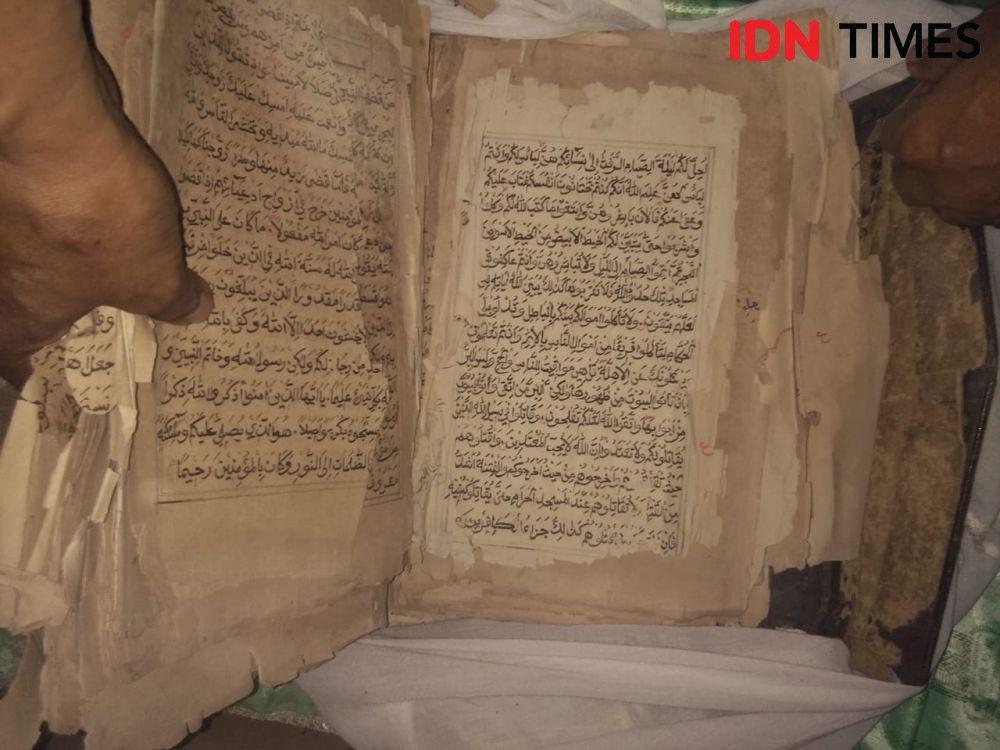 IDN TIMES
اُحِلَّ لَكُمْ لَيْلَةَ الصِّيَامِ الرَّفَثُ اِلٰى نِسَائِكُمْ هُنَّ لِبَاسٌ لَكُمْ وَاَنْتُمْ
لِبَاسٌ لَهُنَّ عَلِمَ اللّٰهُ اَنَّكُمْ كُنْتُمْ تَخْتَانُونَ اَنْفُسَكُمْ فَتَابَ عَلَيْكُمْ
وَعَفَا عَنْكُمْ فَالْاٰنَ بَاشِرُوهُنَّ وَابْتَغُوا مَا كَتَبَ اللّٰهُ لَكُمْ وَكُلُوا
وَاشْرَبُوا حَتّٰى يَتَبَيَّنَ لَكُمُ الْخَيْطُ الْاَبْيَضُ مِنَ الْخَيْطِ الْاَسْوَدِ مِنَ
الْفَجْرِ ثُمَّ اَتِمُّوا الصِّيَامَ اِلَى اللَّيْلِ وَلَا تُبَاشِرُوهُنَّ وَاَنْتُمْ عَاكِفُونَ فِى
الْمَسَاجِدِ تِلْكَ حُدُودُ اللّٰهِ فَلَا تَقْرَبُوهَا كَذٰلِكَ يُبَيِّنُ اللّٰهُ اٰيَاتِهِ
لَعَلَّهُمْ يَتَّقُونَ وَلَا تَأْكُلُوا اَمْوَالَكُمْ بَيْنَكُمْ بِالْبَاطِلِ وَتُدْلُوا بِهَا اِلَى
الْحُكَّامِ لِتَأْكُلُوا فَرِيقًا مِنْ اَمْوَالِ النَّاسِ بِالْاِثْمِ وَاَنْتُمْ تَعْلَمُونَ
يَسْئَلُونَكَ عَنِ الْاَهِلَّةِ قُلْ هِىَ مَوَاقِيتُ لِلنَّاسِ وَالْحَجِّ وَلَيْسَ الْبِرُّ
بِاَنْ تَأْتُوا الْبُيُوتَ مِنْ ظُهُورِهَا وَلٰكِنَّ الْبِرَّ مَنِ اتَّقٰى وَأْتُوا الْبُيُوتَ
مِنْ اَبْوَابِهَا وَاتَّقُوا اللّٰهَ لَعَلَّكُمْ تُفْلِحُونَ وَقَاتِلُوا فِى سَبِيلِ اللّٰهِ الَّذِينَ
يُقَاتِلُونَكُمْ وَلَا تَعْتَدُوا اِنَّ اللّٰهَ لَا يُحِبُّ الْمُعْتَدِينَ وَاقْتُلُوهُمْ
حَيْثُ مِنْ حَيْثُ اَخْرَجُوكُمْ وَالْفِتْنَةُ اَشَدُّ
مِنَ الْقَتْلِ وَلَا تُقَاتِلُوهُمْ عِنْدَ الْمَسْجِدِ الْحَرَامِ حَتّٰى يُقَاتِلُوكُمْ فِيهِ
فَاِنْ فَاقْتُلُوهُمْ كَذٰلِكَ جَزَاءُ الْكَافِرِينَ
اَمْرِهِمْ وَمَنْ يَعْصِ
فَقَدْ ضَلَّ ضَلَالًا مُبِينًا وَاِذْ تَقُولُ لِلَّذِى
وَاَنْعَمْتَ عَلَيْهِ اَمْسِكْ عَلَيْكَ زَوْجَكَ
مَا اللّٰهُ مُبْدِيهِ وَتَخْشَى النَّاسَ وَاللّٰهُ
فَلَمَّا قَضٰى زَيْدٌ مِنْهَا وَطَرًا زَوَّجْنَاكَهَا لِكَيْلَا
الْمُؤْمِنِينَ حَرَجٌ فِى اَزْوَاجِ اَدْعِيَائِهِمْ اِذَا قَضَوْا
وَكَانَ اَمْرُ اللّٰهِ مَفْعُولًا مَا كَانَ عَلَى النَّبِىِّ
اللّٰهُ لَهُ سُنَّةَ اللّٰهِ فِى الَّذِينَ خَلَوْا مِنْ
قَدَرًا مَقْدُورًا الَّذِينَ يُبَلِّغُونَ
يَخْشَوْنَ اَحَدًا اِلَّا اللّٰهَ وَكَفٰى بِاللّٰهِ
اَحَدٍ مِنْ رِجَالِكُمْ وَلٰكِنْ رَسُولَ اللّٰهِ وَخَاتَمَ النَّبِيِّينَ وَ
عَلِيمًا يَا اَيُّهَا الَّذِينَ اٰمَنُوا اذْكُرُوا اللّٰهَ ذِكْرًا
وَسَبِّحُوهُ بُكْرَةً وَاَصِيلًا هُوَ الَّذِى يُصَلِّى عَلَيْكُمْ وَمَلٰئِكَتُهُ
الظُّلُمَاتِ اِلَى النُّورِ وَكَانَ بِالْمُؤْمِنِينَ رَحِيمًا